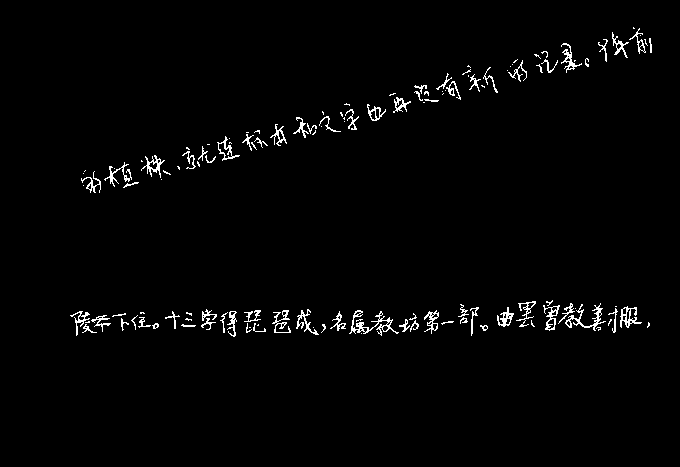 的植株,就连标本和文字也再没有新的记录。少年前
陵下下住。十三字得琵琶成,名属教坊第一部。曲罢曾教善服,